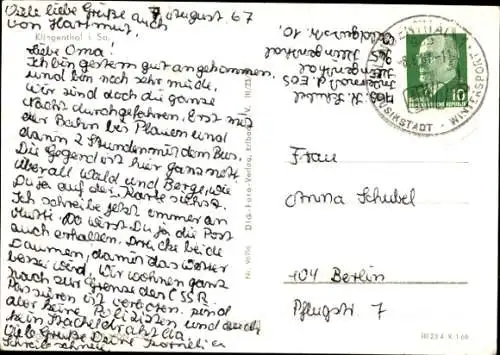 Viele liebe Grüße auch 7. August 67
von Hartmut.
Klingenthal i. Sa.
Liebe Oma!
Ich bin gestern gut angekommen
und bin noch sehr müde.
Wir sind doch die ganze
Nacht durchgefahren. Erst mit
der Bahn bis Plauen und
dann 2 Stunden mit dem Bus.
Die Gegend ist hier ganz nett,
überall Wald und Berge, wie
Du ja auf der Karte siehst.
Ich schreibe jetzt immer an
Mutti. Do wirst Du ja die Post
auch erhalten. Drücke beide
Daumen, damit das Wetter
besser wird. Wir wohnen ganz
nach zur Grenze der ČSSR.
Passieren ist verboten. sind
aber keine Polizisten und
kein Stacheldraht da
Viele Grüße Deine Cornelia
Schreibe
Schubel
Internat d. EOS
Klingenthal
KLINGENTHAL
MUSIKSTADT · WINTERSPORT
10
DEUTSCHE DEMOKRATISCHE REPUBLIK
Frau
Anna Schubel
104 Berlin
Pflugstr. 7
Dia-Foto-Verlag, Erlbach
III 23 4 K 1 66